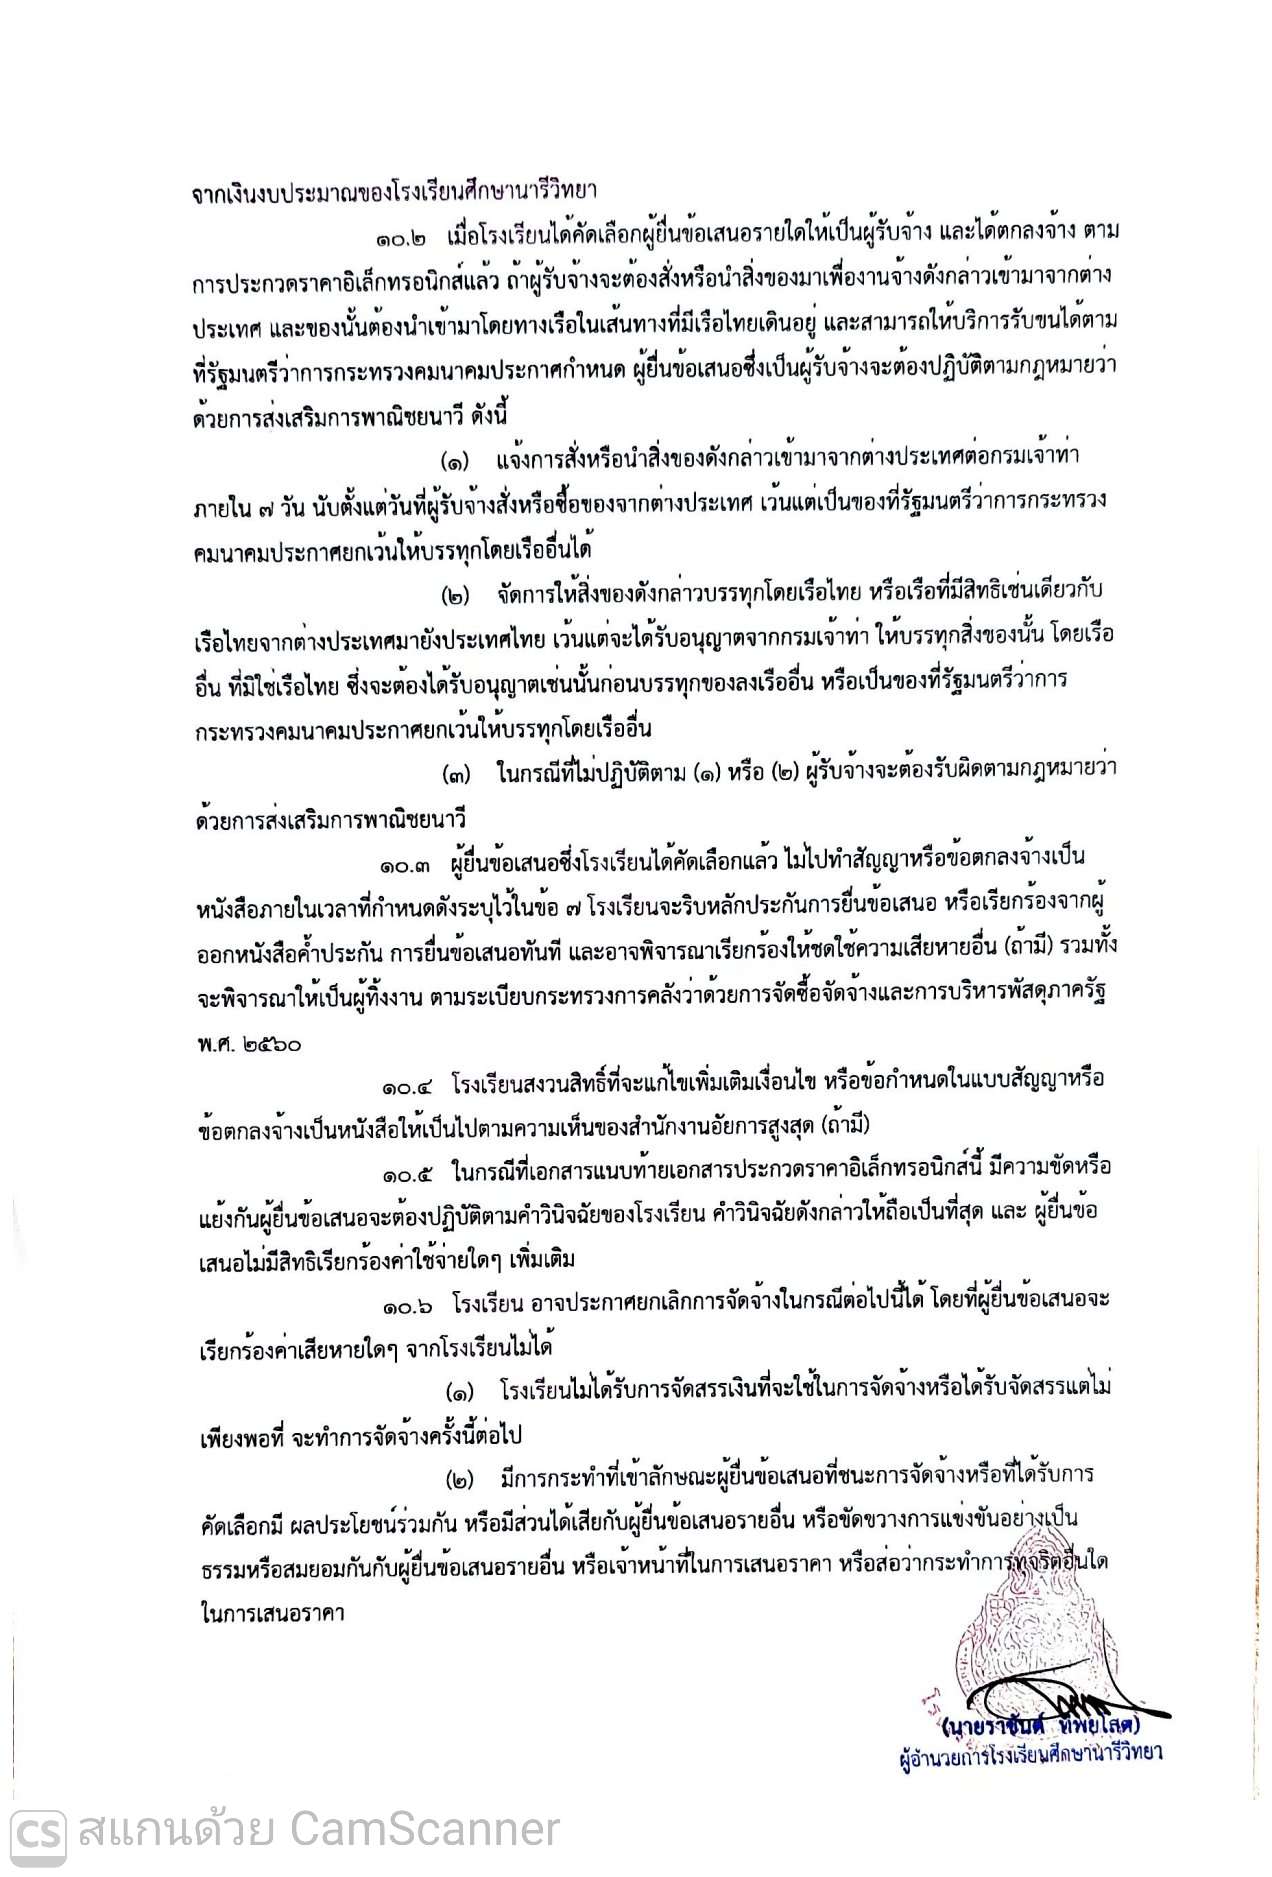 จากเงินงบประมาณของโรงเรียนศึกษานารีวิทยา
๑๐.๒ เมื่อโรงเรียนได้คัดเลือกผู้ยื่นข้อเสนอรายใดให้เป็นผู้รับจ้าง และได้ตกลงจ้าง ตาม
การประกวดราคาอิเล็กทรอนิกส์แล้ว ถ้าผู้รับจ้างจะต้องสั่งหรือนำสิ่งของมาเพื่องานจ้างดังกล่าวเข้ามาจากต่าง
ประเทศ และของนั้นต้องนำเข้ามาโดยทางเรือในเส้นทางที่มีเรือไทยเดินอยู่ และสามารถให้บริการรับขนได้ตาม
ที่รัฐมนตรีว่าการกระทรวงคมนาคมประกาศกำหนด ผู้ยื่นข้อเสนอซึ่งเป็นผู้รับจ้างจะต้องปฏิบัติตามกฎหมายว่า
ด้วยการส่งเสริมการพาณิชยนาวี ดังนี้
(๑) แจ้งการสั่งหรือนำสิ่งของดังกล่าวเข้ามาจากต่างประเทศต่อกรมเจ้าท่า
ภายใน ๗ วัน นับตั้งแต่วันที่ผู้รับจ้างสั่งหรือซื้อของจากต่างประเทศ เว้นแต่เป็นของที่รัฐมนตรีว่าการกระทรวง
คมนาคมประกาศยกเว้นให้บรรทุกโดยเรืออื่นได้
(๒) จัดการให้สิ่งของดังกล่าวบรรทุกโดยเรือไทย หรือเรือที่มีสิทธิเช่นเดียวกับ
เรือไทยจากต่างประเทศมายังประเทศไทย เว้นแต่จะได้รับอนุญาตจากกรมเจ้าท่า ให้บรรทุกสิ่งของนั้น โดยเรือ
อื่น ที่มิใช่เรือไทย ซึ่งจะต้องได้รับอนุญาตเช่นนั้นก่อนบรรทุกของลงเรืออื่น หรือเป็นของที่รัฐมนตรีว่าการ
กระทรวงคมนาคมประกาศยกเว้นให้บรรทุกโดยเรืออื่น
(๓) ในกรณีที่ไม่ปฏิบัติตาม (๑) หรือ (๒) ผู้รับจ้างจะต้องรับผิดตามกฎหมายว่า
ด้วยการส่งเสริมการพาณิชยนาวี
๑๐.๓ ผู้ยื่นข้อเสนอซึ่งโรงเรียนได้คัดเลือกแล้ว ไม่ไปทำสัญญาหรือข้อตกลงจ้างเป็น
หนังสือภายในเวลาที่กำหนดดังระบุไว้ในข้อ ๗ โรงเรียนจะริบหลักประกันการยื่นข้อเสนอ หรือเรียกร้องจากผู้
ออกหนังสือค้ำประกัน การยื่นข้อเสนอทันที และอาจพิจารณาเรียกร้องให้ชดใช้ความเสียหายอื่น (ถ้ามี) รวมทั้ง
จะพิจารณาให้เป็นผู้ทิ้งงาน ตามระเบียบกระทรวงการคลังว่าด้วยการจัดซื้อจัดจ้างและการบริหารพัสดุภาครัฐ
พ.ศ. ๒๕๖๐
๑๐.๔ โรงเรียนสงวนสิทธิ์ที่จะแก้ไขเพิ่มเติมเงื่อนไข หรือข้อกำหนดในแบบสัญญาหรือ
ข้อตกลงจ้างเป็นหนังสือให้เป็นไปตามความเห็นของสำนักงานอัยการสูงสุด (ถ้ามี)
๑๐.๕ ในกรณีที่เอกสารแนบท้ายเอกสารประกวดราคาอิเล็กทรอนิกส์นี้ มีความขัดหรือ
แย้งกันผู้ยื่นข้อเสนอจะต้องปฏิบัติตามคำวินิจฉัยของโรงเรียน คำวินิจฉัยดังกล่าวให้ถือเป็นที่สุด และ ผู้ยื่นข้อ
เสนอไม่มีสิทธิเรียกร้องค่าใช้จ่ายใดๆ เพิ่มเติม
๑๐.๖ โรงเรียน อาจประกาศยกเลิกการจัดจ้างในกรณีต่อไปนี้ได้ โดยที่ผู้ยื่นข้อเสนอจะ
เรียกร้องค่าเสียหายใดๆ จากโรงเรียนไม่ได้
(๑) โรงเรียนไม่ได้รับการจัดสรรเงินที่จะใช้ในการจัดจ้างหรือได้รับจัดสรรแต่ไม่
เพียงพอที่ จะทำการจัดจ้างครั้งนี้ต่อไป
(๒) มีการกระทำที่เข้าลักษณะผู้ยื่นข้อเสนอที่ชนะการจัดจ้างหรือที่ได้รับการ
คัดเลือกมี ผลประโยชน์ร่วมกัน หรือมีส่วนได้เสียกับผู้ยื่นข้อเสนอรายอื่น หรือขัดขวางการแข่งขันอย่างเป็น
ธรรมหรือสมยอมกันกับผู้ยื่นข้อเสนอรายอื่น หรือเจ้าหน้าที่ในการเสนอราคา หรือส่อว่ากระทำการทุจริตอื่นใด
ในการเสนอราคา
(นายราชันต์ ทิพยโสต)
ผู้อำนวยการโรงเรียนศึกษานารีวิทยา
CS สแกนด้วย CamScanner